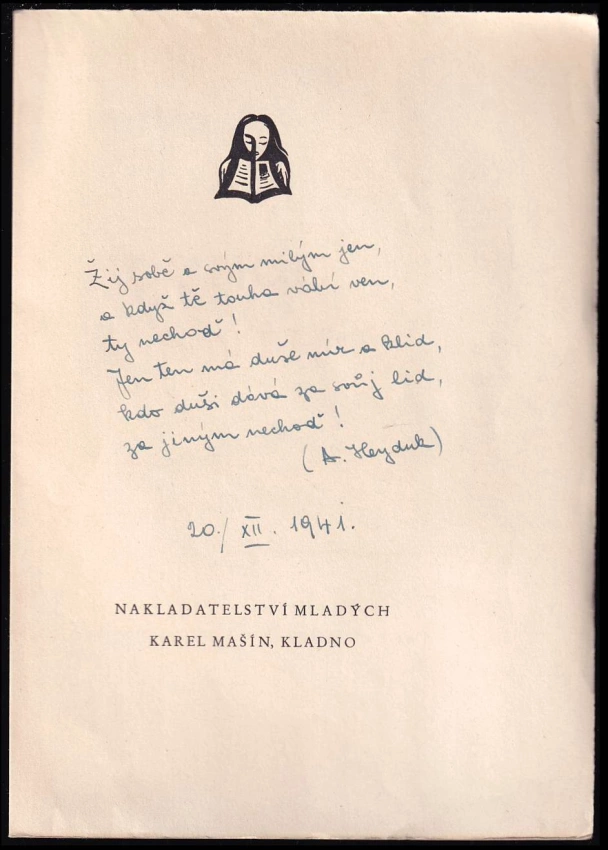 Žij sobě a svým milým jen,
a když tě touha vábí ven,
ty nechoď!
Jen ten má duše mír a klid,
kdo duši dává za svůj lid,
za jiným nechoď!
(A. Heyduk)
20./XII. 1941.
NAKLADATELSTVÍ MLADÝCH
KAREL MAŠÍN, KLADNO